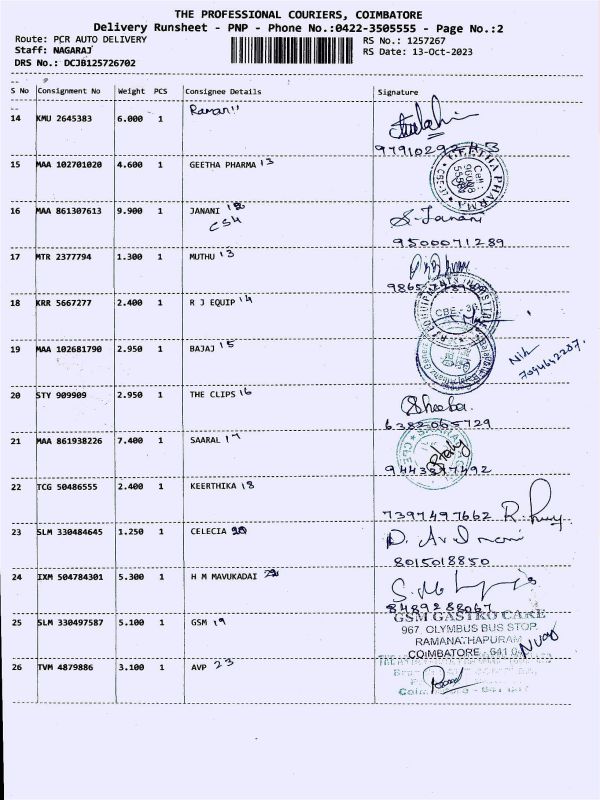 THE PROFESSIONAL COURIERS, COIMBATORE
Delivery Runsheet - PNP - Phone No.:0422-3505555 - Page No.:2
Route: PCR AUTO DELIVERY RS No.: 1257267
Staff: NAGARAJ RS Date: 13-Oct-2023
DRS No.: DCJB125726702
S No Consignment No Weight PCS Consignee Details Signature
14 KMU 2645383 6.000 1
15 MAA 102701020 4.600 1 GEETHA PHARMA 13
16 MAA 861307613 9.900 1 JANANI
S. Janani
9500071289
17 MTR 2377794 1.300 1 MUTHU 13
18 KRR 5667277 2.400 1 R J EQUIP 14
19 MAA 102681790 2.950 1 BAJAJ 15
20 STY 909909 2.950 1 THE CLIPS 16
Sheeba
6382065729
21 MAA 861938226 7.400 1 SAARAL 17
22 TCG 50486555 2.400 1 KEERTHIKA 18
7397497662
23 SLM 330484645 1.250 1 CELECIA
8015018850
24 IXM 504784301 5.300 1 H M MAVUKADAI
8489288067
25 SLM 330497587 5.100 1 GSM 19
GSM GASTRO CARE
967, OLYMBUS BUS STOP,
RAMANATHAPURAM,
COIMBATORE - 641 0
26 TVM 4879886 3.100 1 AVP 23